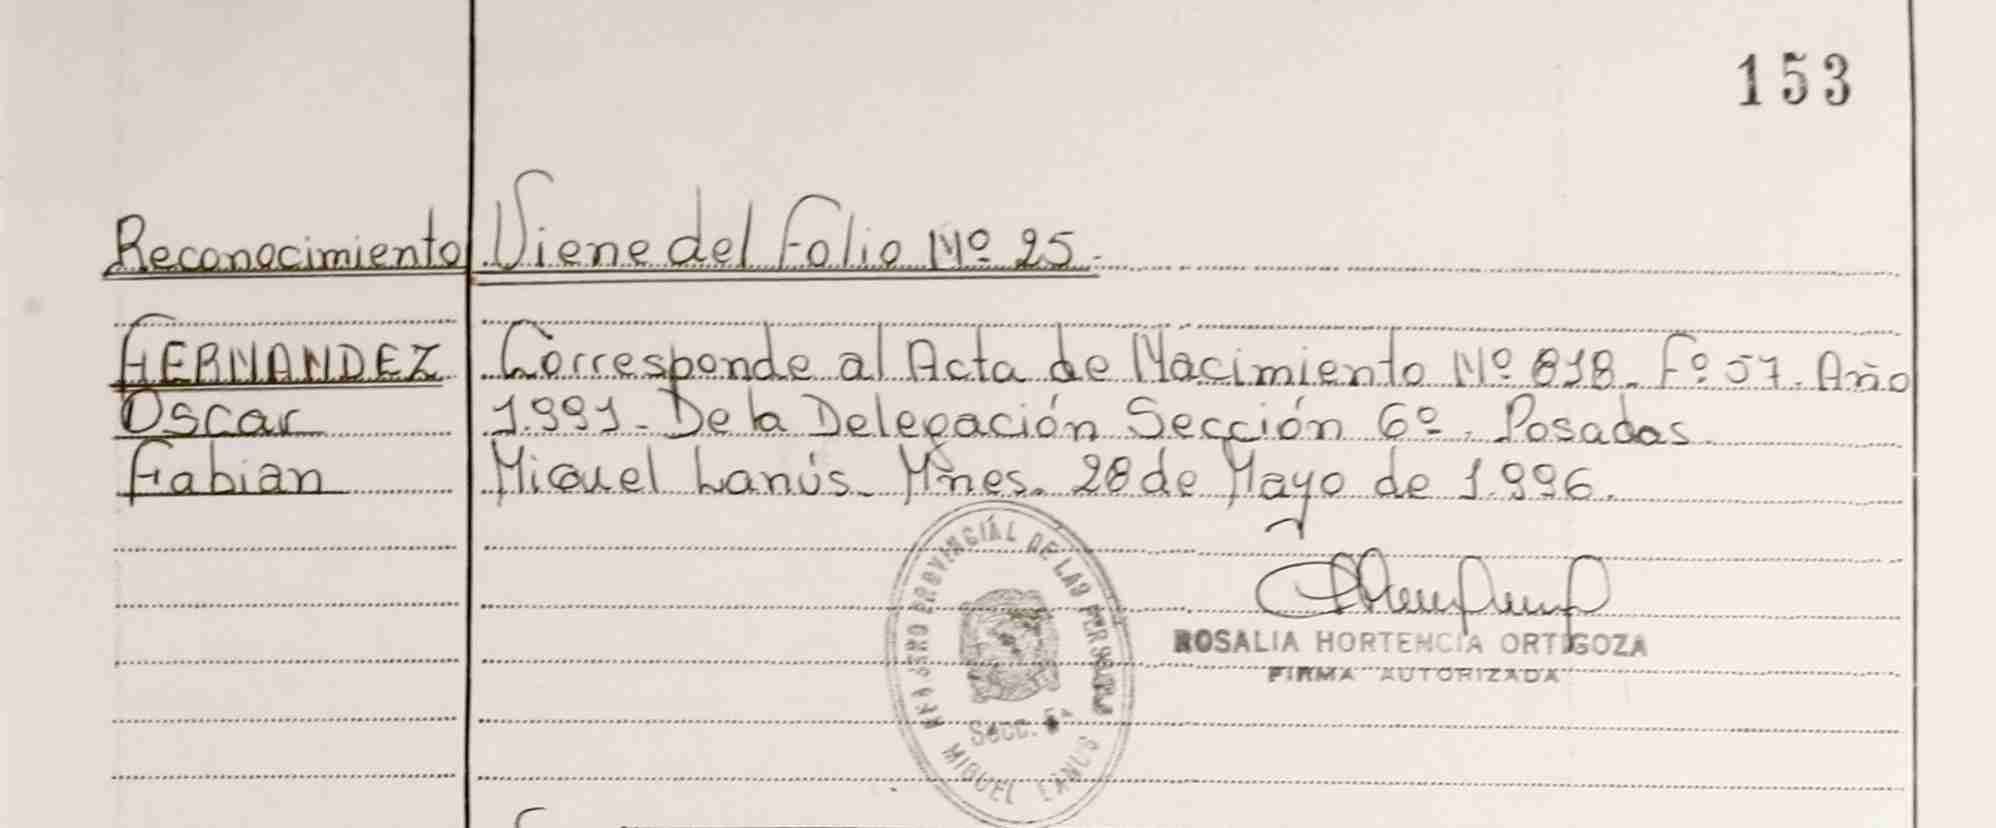 153
Reconocimiento Viene del Folio Nº 25.
FERNANDEZ Corresponde al Acta de Nacimiento Nº 818. Fº 57. Año
Oscar 1.991. De la Delegación Sección 6º. Posadas.
Fabian Miguel Lanús. Mnes. 28 de Mayo de 1.996.
ROSALIA HORTENCIA ORTIGOZA
FIRMA AUTORIZADA
REGISTRO PROVINCIAL DE LAS PERSONAS
Secc.
MIGUEL LANUS